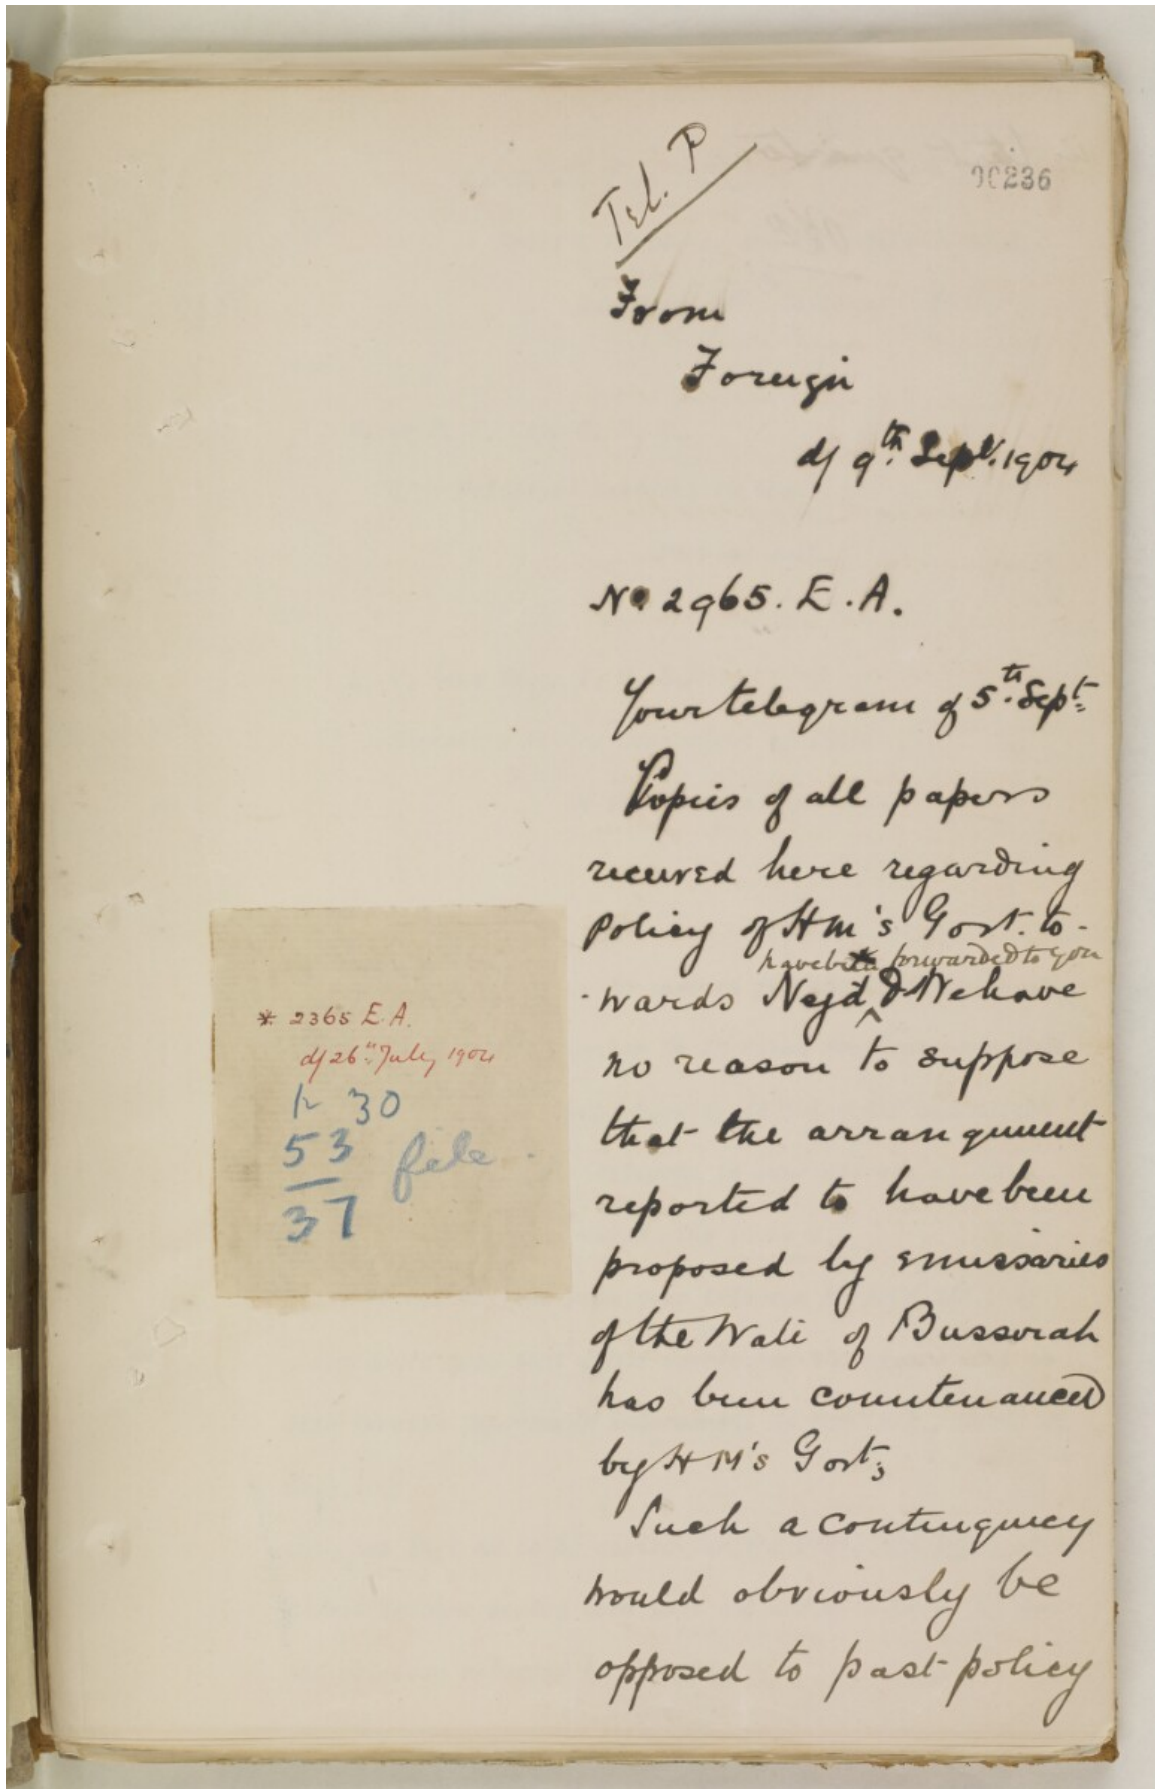 Tel. P
00236
From
Foreign
d/ 9th. Sept. 1904
No 2965. E.A.
Your telegram of 5th. Sept.
Copies of all papers
received here regarding
policy of HM's Govt. to-
have been forwarded to you
-wards Nejd We have
no reason to suppose
that the arrangement
reported to have been
proposed by emissaries
of the Wali of Bussorah
has been countenanced
by HM's Govt;
Such a contingency
would obviously be
opposed to past policy
* 2365 E.A.
d/ 26th. July, 1904
30
53 file.
37